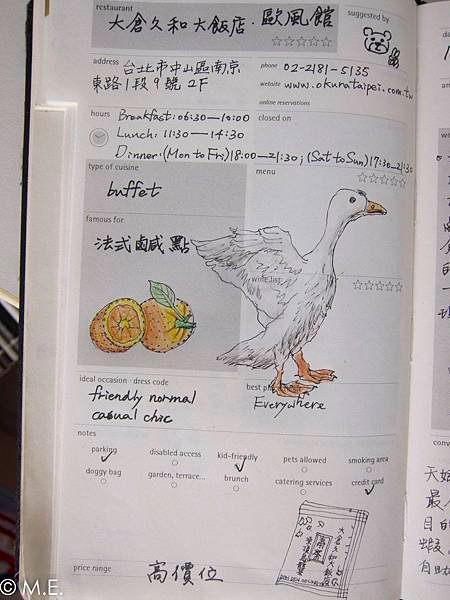 restaurant
大倉久和大飯店·歐風館
suggested by
address 台北市中山區南京
東路1段9號 2F
phone 02-2181-5135
website www.okurataipei.com.tw
online reservations
hours Breakfast: 06:30—10:00
Lunch: 11:30—14:30
Dinner: (Mon to Fri) 18:00—21:30; (Sat to Sun) 17:30—21:30
closed on
type of cuisine
buffet
menu
famous for
法式鹹鹹點
wine list
ideal occasion · dress code
friendly normal
casual chic
best
Everywhere
notes
parking
disabled access
kid-friendly
pets allowed
smoking area
doggy bag
garden, terrace...
brunch
catering services
credit card
大倉久和大飯店
price range
高價位
© M.E.